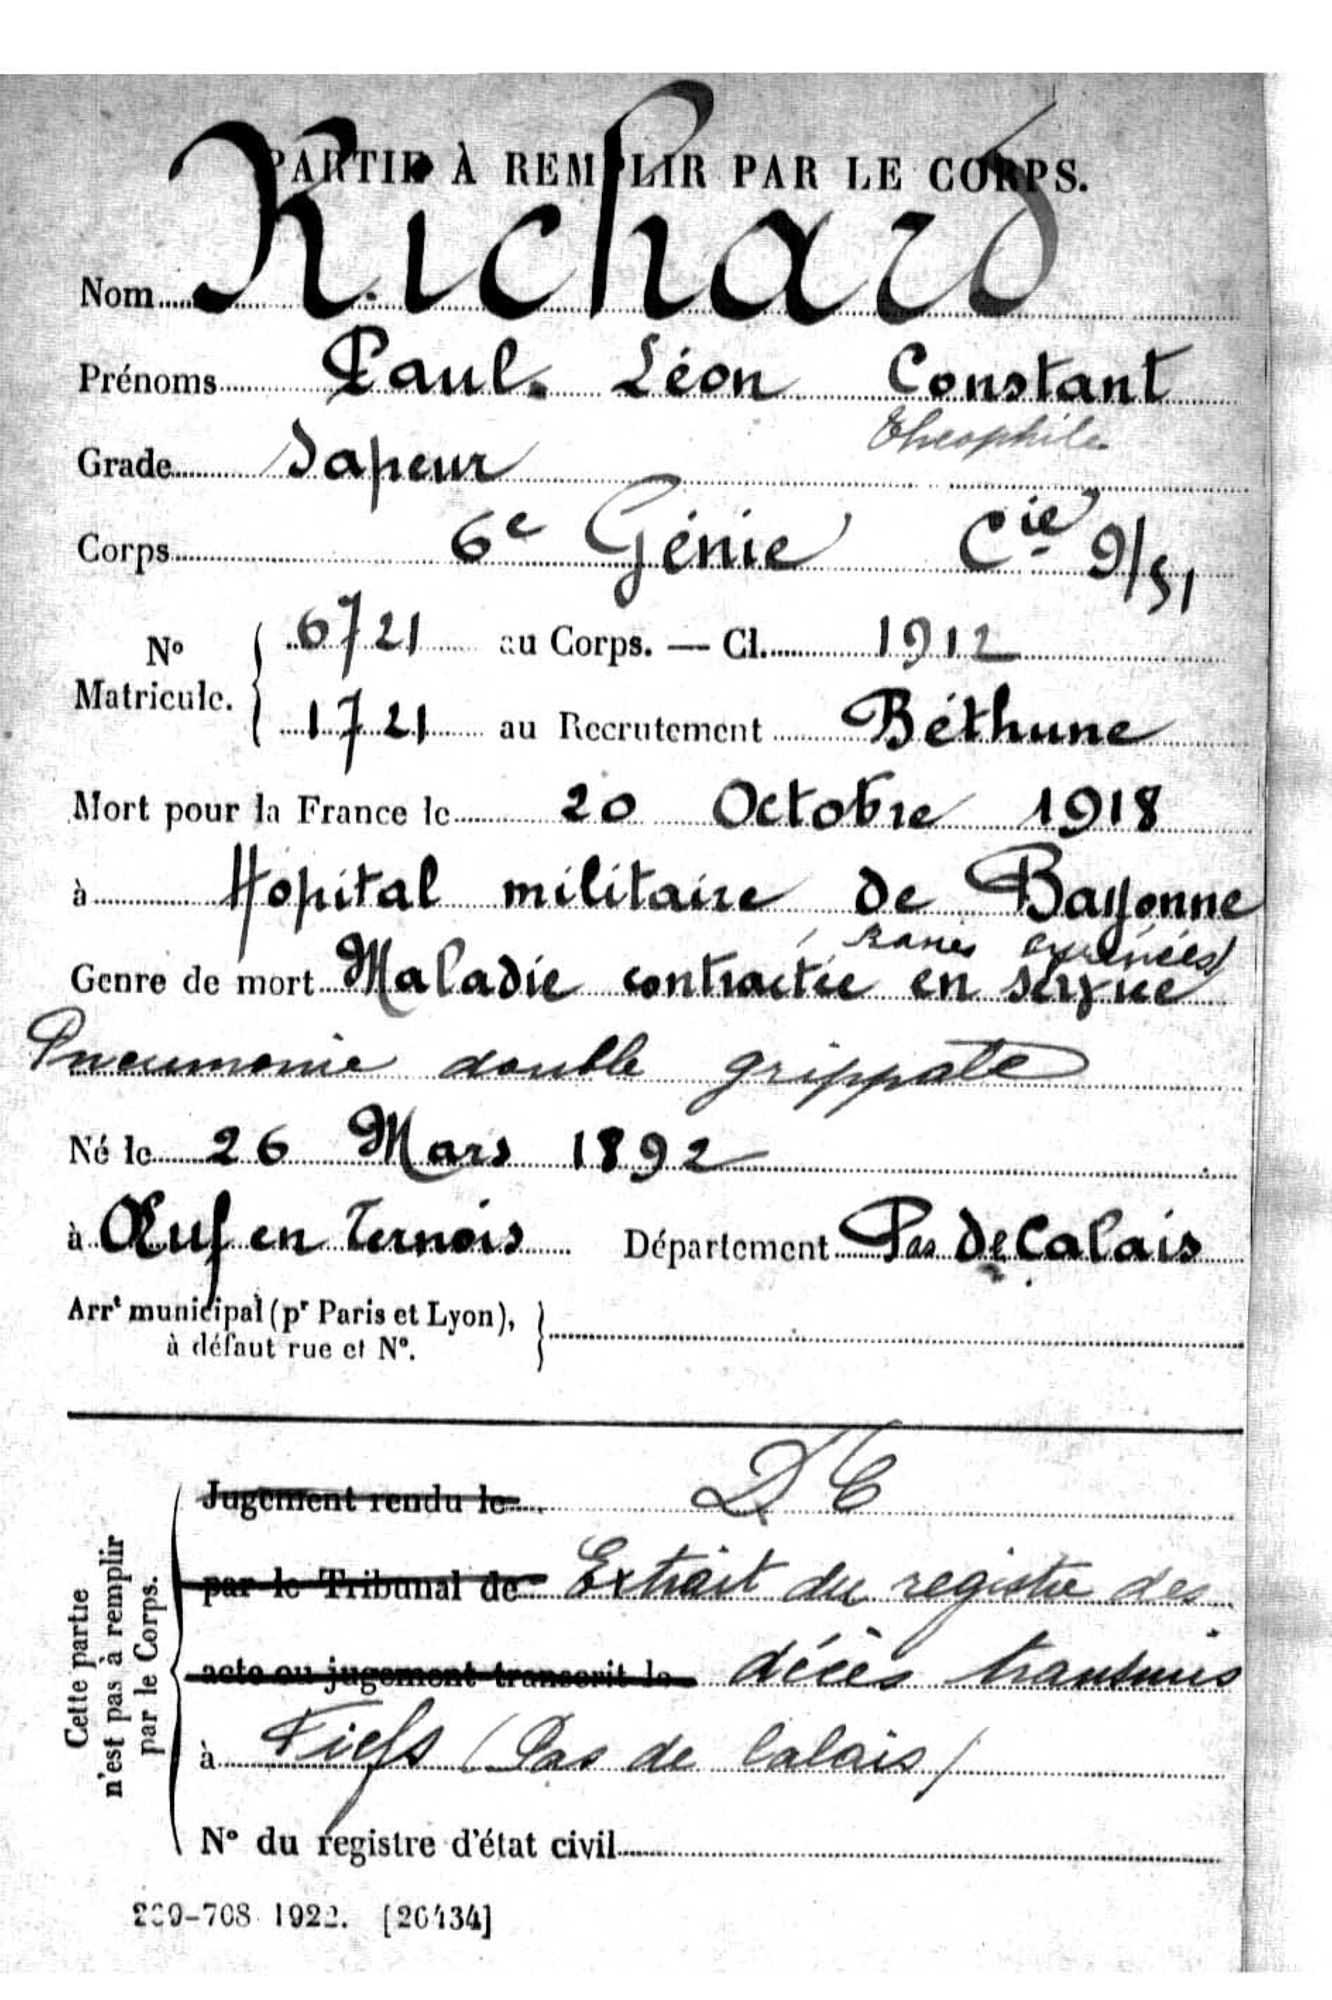 PARTIE À REMPLIR PAR LE CORPS.
Nom Richard
Prénoms Paul. Léon Constant
Théophile
Grade Sapeur
Corps 6e Génie Cie 9/51
No Matricule. 6721 au Corps. — Cl. 1912
1721 au Recrutement Béthune
Mort pour la France le 20 Octobre 1918
à Hopital militaire de Bayonne
Pyrénées)
Genre de mort Maladie contractée en service
Pneumonie double grippale
Né le 26 Mars 1892
à Œuf en Ternois Département Pas de Calais
Arrt municipal (pr Paris et Lyon),
à défaut rue et No.
Cette partie
n'est pas à remplir
par le Corps.
Jugement rendu le DC
par le Tribunal de Extrait du registre des
acte ou jugement transcrit le décès transmis
à Fiefs (Pas de Calais)
No du registre d'état civil
708 1922. [26434]